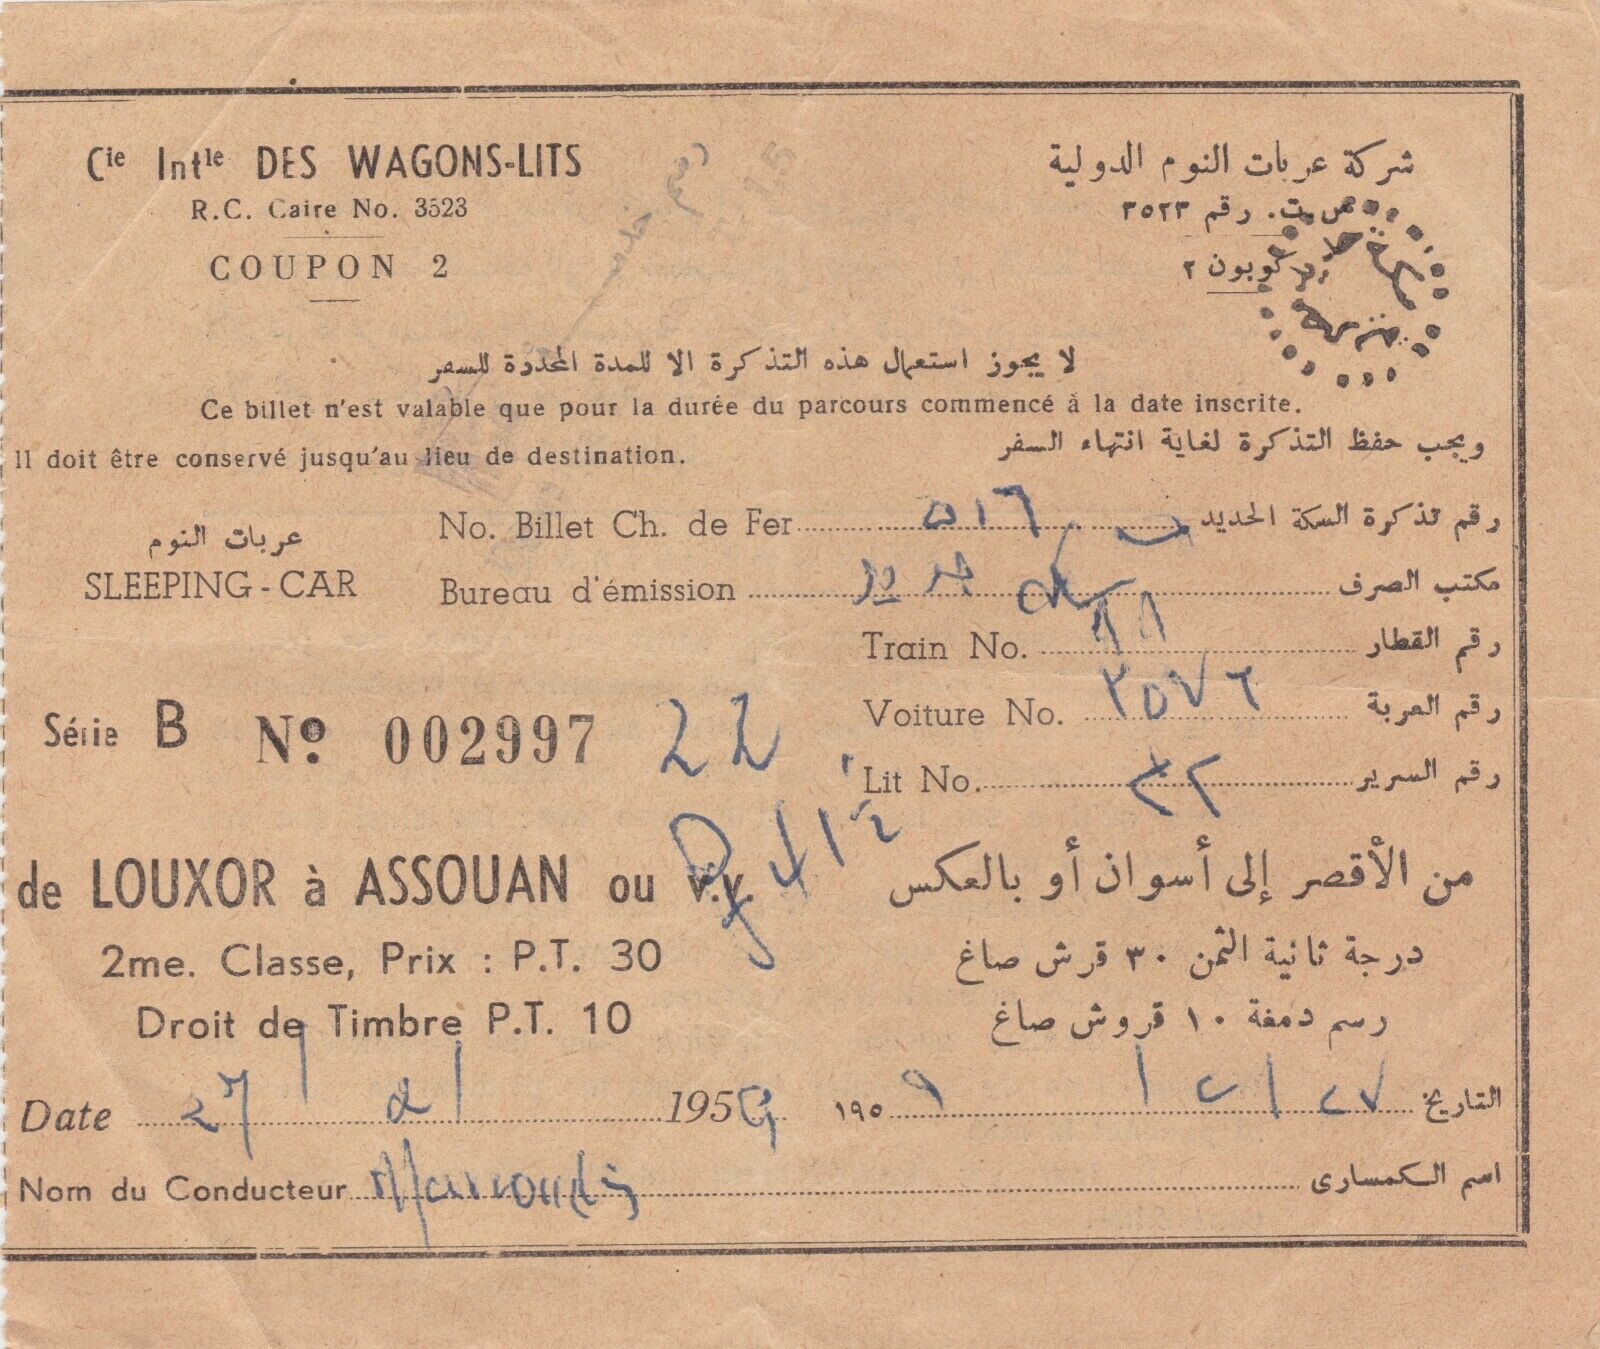 Cie Intle DES WAGONS-LITS
شركة عربات النوم الدولية
R.C. Caire No. 3523
س.ت. رقم ٣٥٢٣
COUPON 2
كوبون ٢
لا يجوز استعمال هذه التذكرة الا للمدة المحددة للسفر
Ce billet n'est valable que pour la durée du parcours commencé à la date inscrite.
Il doit être conservé jusqu'au lieu de destination.
ويجب حفظ التذكرة لغاية انتهاء السفر
عربات النوم
SLEEPING-CAR
No. Billet Ch. de Fer ٥١٦ رقم تذكرة السكة الحديد
Bureau d'émission مكتب الصرف
Train No. ٨٨ رقم القطار
Série B No. 002997 22
Voiture No. ٣٥٧٦ رقم العربة
Lit No. رقم السرير
de LOUXOR à ASSOUAN ou v.v.
من الأقصر إلى أسوان أو بالعكس
2me. Classe, Prix : P.T. 30
درجة ثانية الثمن ٣٠ قرش صاغ
Droit de Timbre P.T. 10
رسم دمغة ١٠ قروش صاغ
Date 27/2/1959
التاريخ ٢٧/٢/١٩٥٩
Nom du Conducteur
اسم الكمسارى